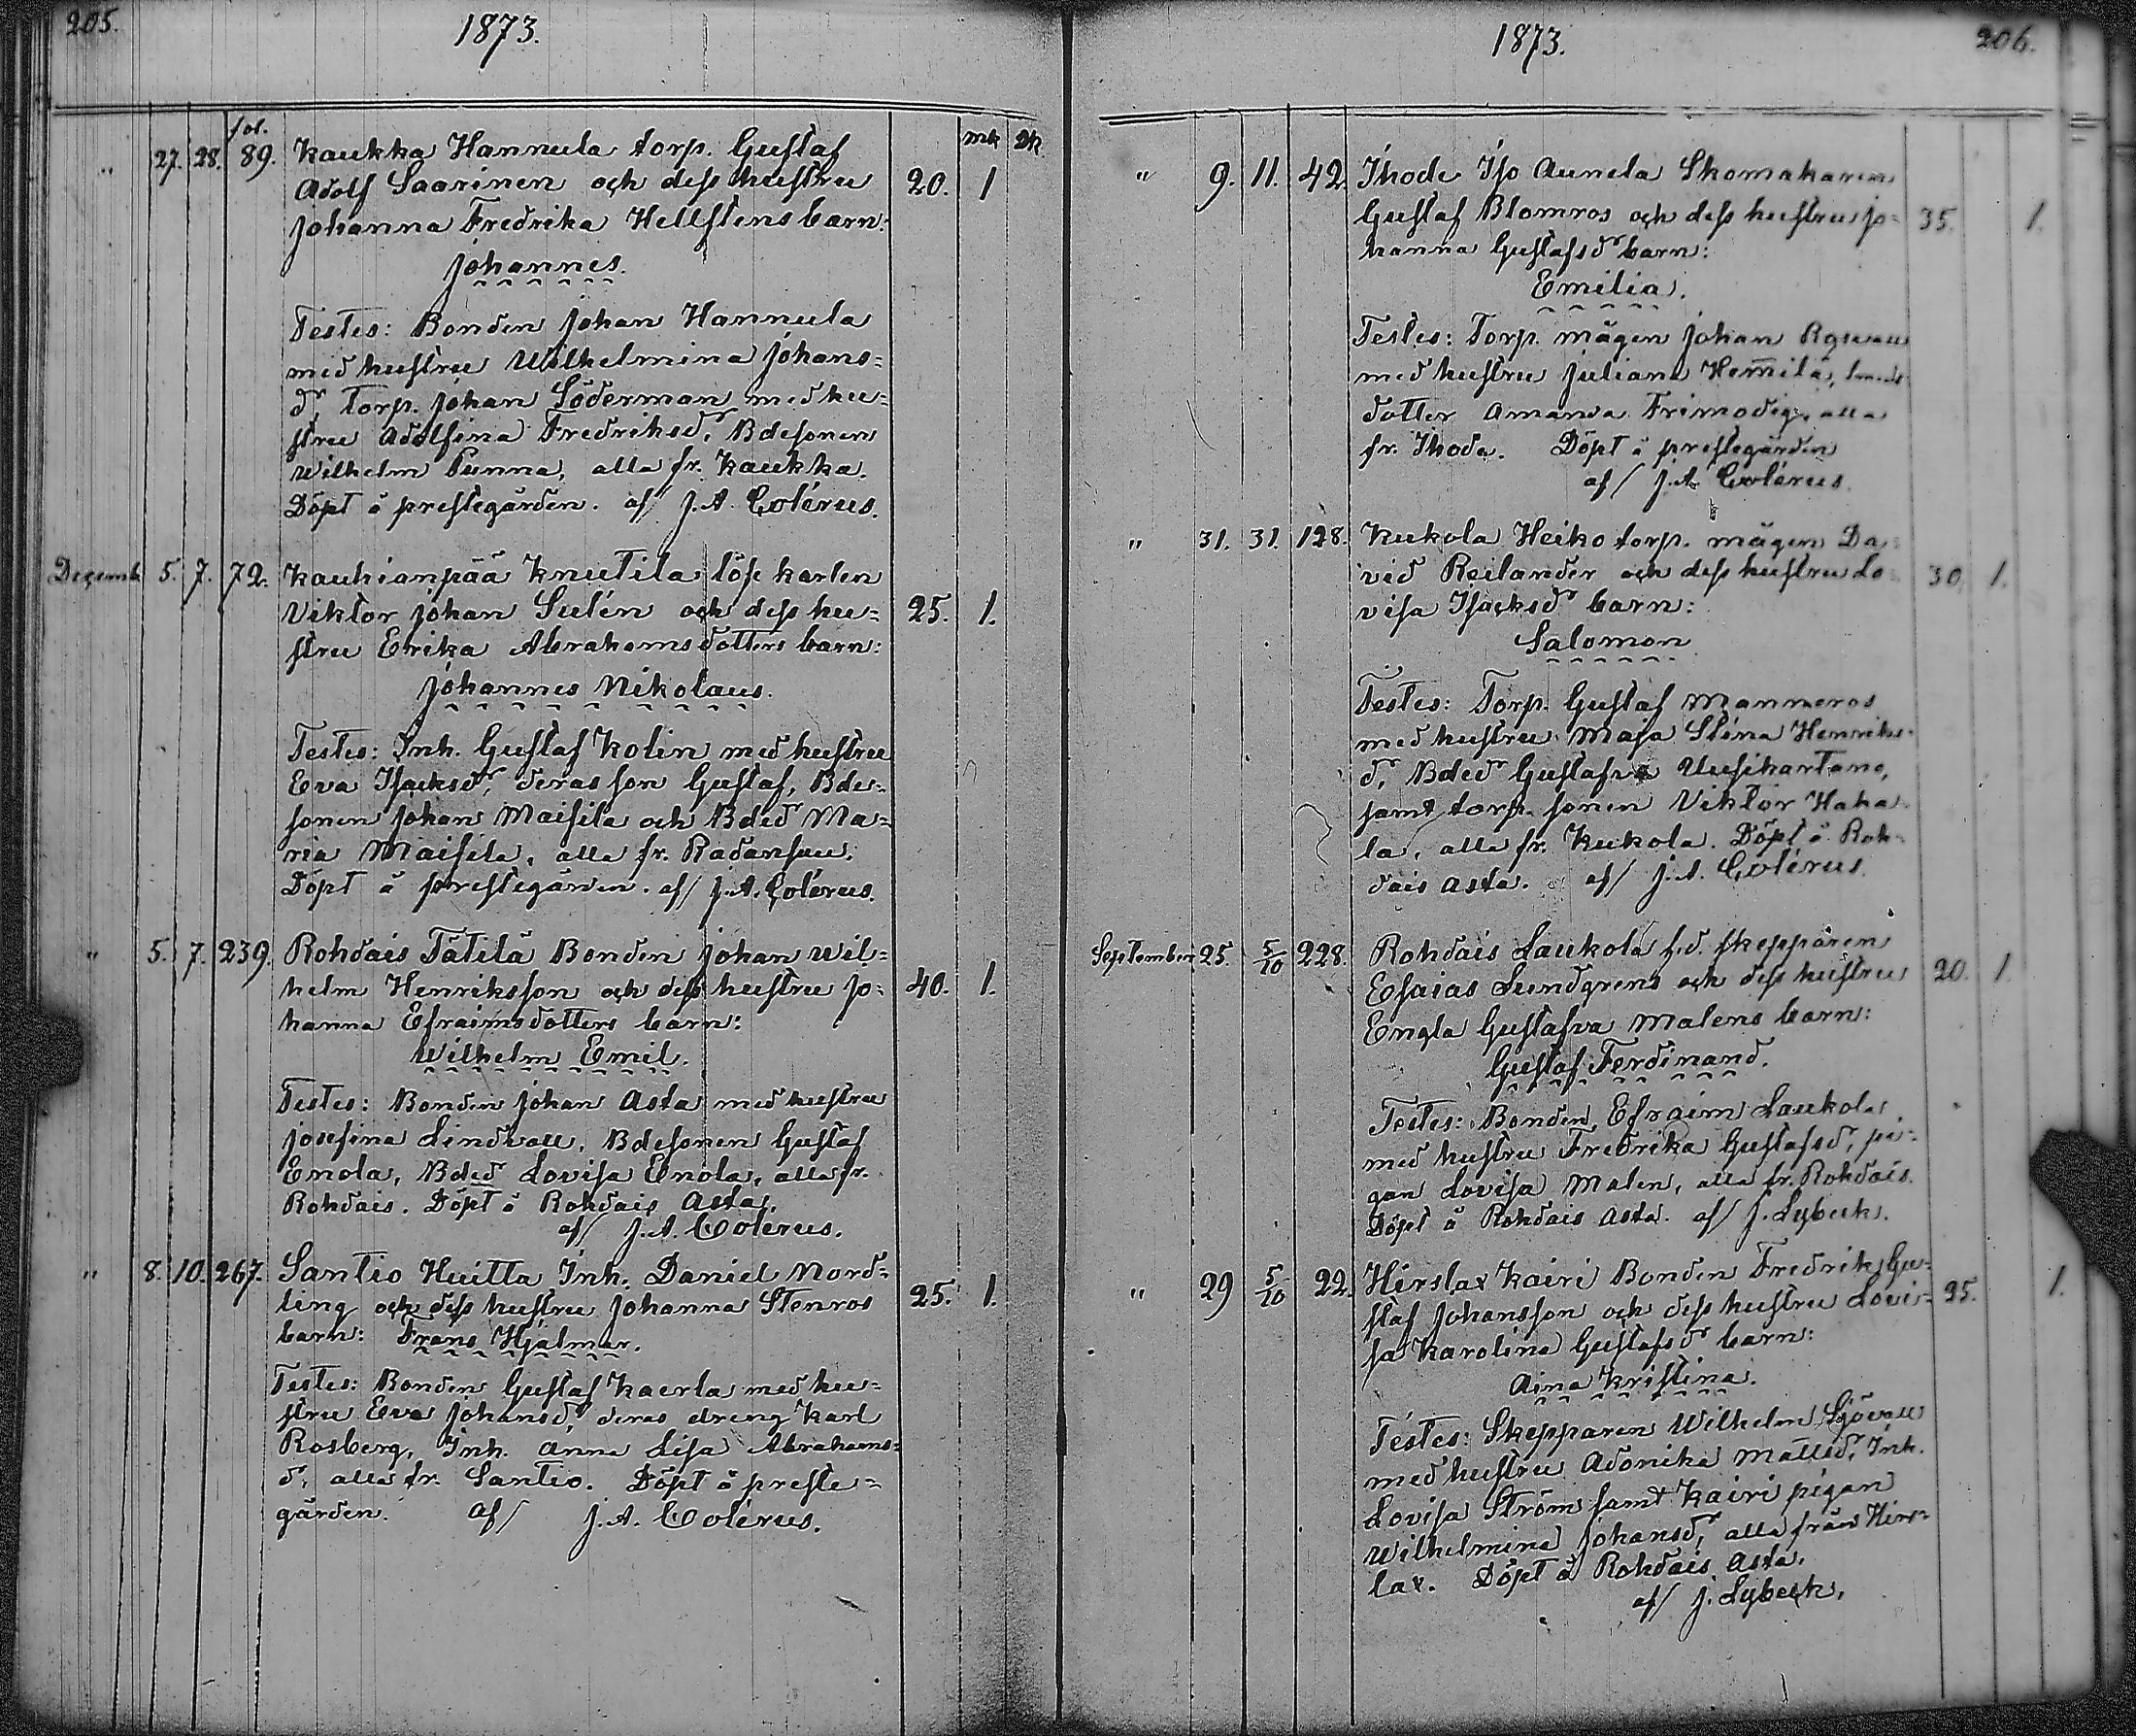 205.
1873.
fol.
mk
" 27. 28. 89. Kaukka Hannula torp. Gustaf
Adolf Saarinen och dess hustru 20. 1
Johanna Fredrika Hellstens barn:
Johannes.
Testes: Bonden Johan Hannula
med hustru Wilhelmina Johans=
dr, Torp. Johan Söderman med hu=
stru Adolfina Fredriksdr, Bdesonen
Wilhelm Punna, alla fr. Kaukka.
Döpt å prestegården. af/ J. A. Colérus.
Decemb. 5. 7. 72. Kauhianpää Knutila löskarlen
Viktor Johan Sulén och dess hu= 25. 1.
stru Erika Abrahamsdotters barn:
Johannes Nikolaus.
Testes: Inh. Gustaf Kolin med hustru
Eva Isacksdr, deras son Gustaf, Bde=
sonen Johan Maisila och Bdedr Ma=
ria Maisila, alla fr. Radansuu.
Döpt å prestegården. af/ J. A. Colérus.
" 5. 7. 239. Rohdais Tätilä Bonden Johan Wil=
helm Henriksson och dess hustru Jo= 40. 1.
hanna Efraimsdotters barn:
Wilhelm Emil.
Testes: Bonden Johan Asta med hustru
Josefina Lindvall, Bdesonen Gustaf
Enola, Bdedr Lovisa Enola, alla fr.
Rohdais. Döpt å Rohdais Asta.
af/ J. A. Colérus.
" 8. 10. 267. Santio Huitta Inh. Daniel Nord=
ling och dess hustru Johanna Stenros 25. 1.
barn: Frans Hjalmar.
Testes: Bonden Gustaf Kaerla med hu=
stru Eva Johansdr, deras dreng Karl
Rosberg, Inh. Anna Lisa Abrahams=
dr, alla fr. Santio. Döpt å preste=
gården. af/ J. A. Colérus.
1873.
206.
" 9. 11. 42. Ihode Iso Aunela Skomakaren
Gustaf Blomros och dess hustru Jo= 35. 1.
hanna Gustafsdr barn:
Emilia.
Testes: Torp. mågen Johan
med hustru Juliana Hemilä,
dotter Amanda Frimodig, alla
fr. Ihode. Döpt å prestegården
af/ J. A. Colérus.
" 31. 31. 128. Kukola Heiko torp. mågen Da=
vid Reilander och dess hustru Lo= 30. 1.
visa Isacksdr barn:
Salomon
Testes: Torp. Gustaf Manneros
med hustru Maja Stina Henriks=
dr, Bdedr Gustafva Uusikartano,
samt torp. sonen Viktor Haka=
la, alla fr. Kukola. Döpt å Roh=
dais Asta. af/ J. A. Colérus.
September 25. 5/10 228. Rohdais Laukola f.d. skepparen
Esaias Lundgrens och dess hustru 20. 1
Engla Gustafva Malens barn:
Gustaf Ferdinand.
Testes: Bonden Efraim Laukola
med hustru Fredrika Gustafsdr, pi=
gan Lovisa Malen, alla fr. Rohdais.
Döpt å Rohdais Asta. af/ J. Lybeck.
" 29 5/10 22. Hirslax Kairi Bonden Fredrik Gu=
staf Johansson och dess hustru Lovi= 25. 1.
sa Karolina Gustafsdr barn:
Aina Kristina.
Testes: Skepparen Wilhelm Sjövall
med hustru Adonika Mattsdr, Inh.
Lovisa Ström samt Kairi pigan
Wilhelmina Johansdr, alla från Hirs=
lax. Döpt å Rohdais Asta.
af/ J. Lybeck.